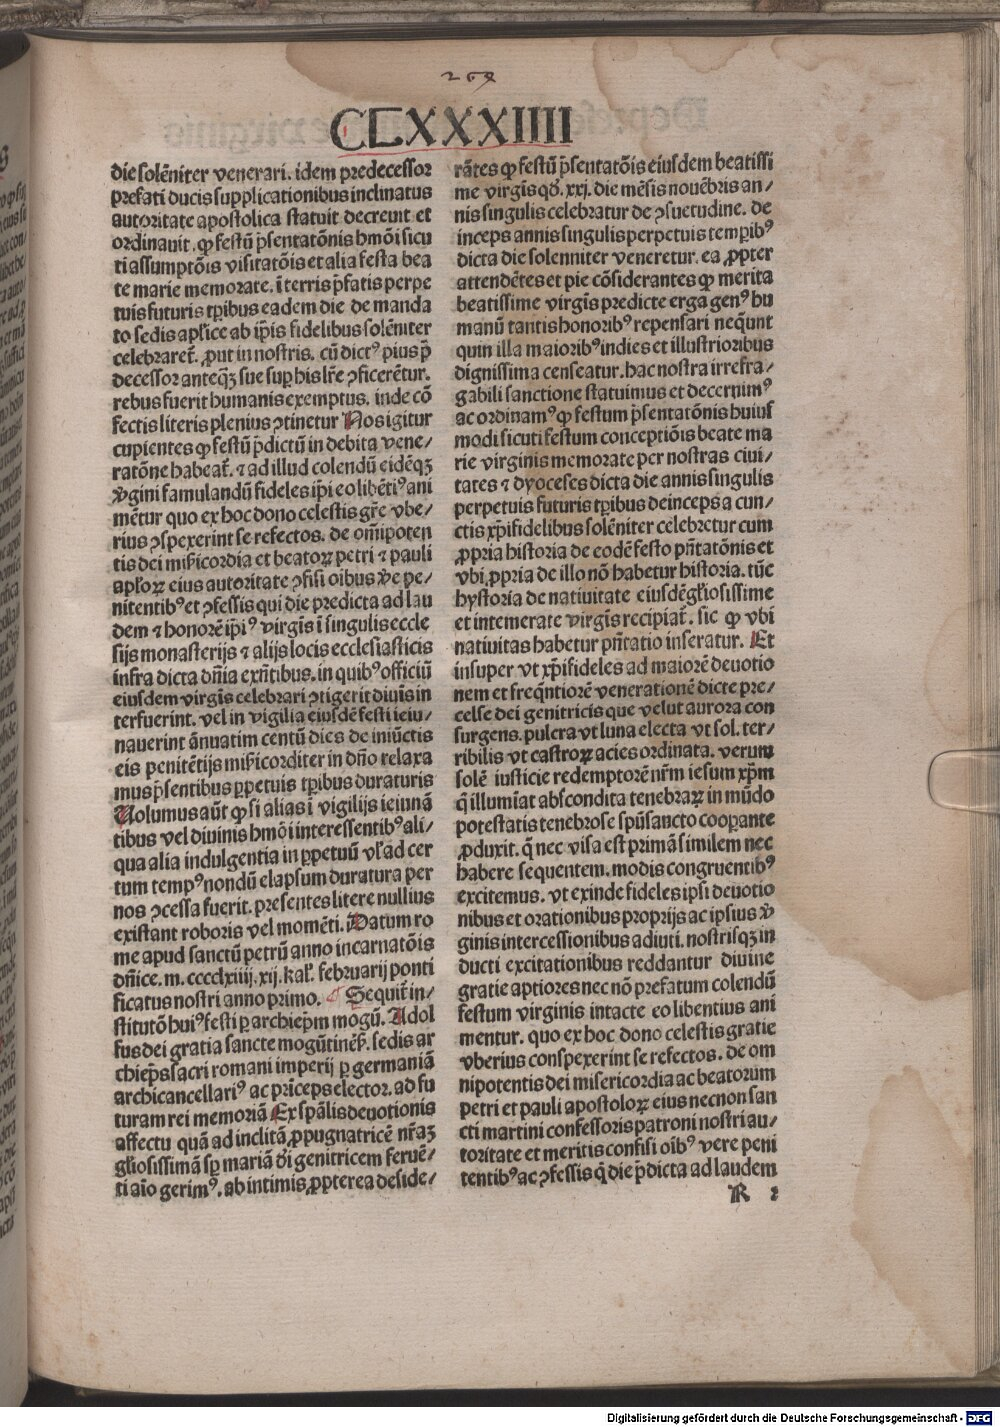 269
CLXXXIIII
die solēniter venerari. idem predecessor
prefati ducis supplicationibus inclinatus
autoritate apostolica statuit decreuit et
ordinauit. ꝙ festū p̄sentatōnis hmōi sicu
ti assumptōis visitatōis et alia festa bea
te marie memorate. ī terris p̄fatis perpe
tuis futuris tp̄ibus eadem die de manda
to sedis apl̄ice ab ip̄is fidelibus solēniter
celebraret̄. ꝓut in nostris. cū dictꝰ pius p̄
decessor anteqꝫ sue sup̱ his lr̄e ꝯficerētur.
rebus fuerit humanis exemptus. inde cō
fectis literis plenius ꝯtinetur Nos igitur
cupientes ꝙ festū p̄dictū in debita vene/
ratōne habeat̄. ⁊ ad illud colendū eidēqꝫ
v̓gini famulandū fideles ip̄i eo libētiꝰ ani
mētur quo ex hoc dono celestis gr̄e vbe/
rius ꝯspexerint se refectos. de om̄ipoten
tis dei mīcordia et beatoꝝ petri ⁊ pauli
apl̓oꝝ eius autoritate ꝯfisi oibus v̓e pe/
nitentibꝰ et ꝯfessis qui die predicta ad lau
dem ⁊ honorē ip̄iꝰ virgīs ī singulis eccle
sijs monasterijs ⁊ alijs locis ecclesiasticis
infra dicta dn̄ia exn̄tibus. in quibꝰ officiū
eiusdem virgīs celebrari ꝯtigerit diuīs in
terfuerint. vel in vigilia eiusdē festi ieiu/
nauerint ānuatim centū dies de iniūctis
eis penitētijs mīcorditer in dn̄o relaxa
mus p̄sentibus ꝑpetuis tp̄ibus duraturis
Nolumus aūt ꝙ si alias ī vigilijs ieiunā
tibus vel diuinis hmōi interessentibꝰ ali/
qua alia indulgentia in ꝑpetuū vl̓ ad cer
tum tempꝰ nondū elapsum duratura per
nos ꝯcessa fuerit. presentes litere nullius
existant roboris vel momēti. Datum ro
me apud sanctū petrū anno incarnatōis
dn̄ice. m. cccclxiiij. xij. kal̓. februarij ponti
ficatus nostri anno primo. ¶ Sequit̄ in/
stitutō huiꝰ festi ꝑ archiep̄m mogū. Adol
fus dei gratia sancte mogūtinēs̓. sedis ar
chiep̄s sacri romani imperij ꝑ germaniā
archicancellariꝰ ac prīceps elector. ad fu
turam rei memoriā Ex sp̄alis deuotionis
affectu quā ad inclitā ꝓpugnatricē nr̄aꝫ
gl̓iosissimā sp̄ mariā d̓i genitricem feruē/
ti aīo gerimꝰ. ab intimis ꝓpterea deside/
rātes ꝙ festū p̄sentatōis eiusdem beatissi
me virgīs qd̓. xxi. die mēsis nouēbris an/
nis singulis celebratur de ꝯsuetudine. de
inceps annis singulis perpetuis temp̱ibꝰ
dicta die solenniter veneretur. ea ꝓpter
attendētes et pie cōsiderantes ꝙ merita
beatissime virgīs predicte erga genꝰ hu
manū tantis honoribꝰ repensari neq̄unt
quin illa maioribꝰ indies et illustrioribus
dignissima censeatur. hac nostra irrefra/
gabili sanctione statuimus et decernimꝰ
ac ordinamꝰ ꝙ festum p̄sentatōnis huius
modi sicuti festum conceptiōis beate ma
rie virginis memorate per nostras ciui/
tates ⁊ dyoceses dicta die annis singulis
perpetuis futuris tp̄ibus deinceps a cun/
ctis xp̄ifidelibus solēniter celebretur cum
ꝓpria historia de eodē festo pn̄tatōnis et
vbi ꝓpria de illo nō habetur historia. tūc
hystoria de natiuitate eiusdē gl̓iosissime
et intemerate virgīs recipiat̄. sic ꝙ vbi
natiuitas habetur pn̄tatio inseratur. Et
insuper vt xp̄ifideles ad maiorē deuotio
nem et freq̄ntiorē venerationē dicte pre/
celse dei genitricis que velut aurora con
surgens. pulcra vt luna electa vt sol. ter/
ribilis vt castroꝝ acies ordinata. verum
solē iusticie redemptorē nr̄m iesum xp̄m
q̄ illumīat abscondita tenebraꝝ in mūdo
potestatis tenebrose spū sancto cooꝑante
ꝓduxit. q̄ nec visa est primā similem nec
habere sequentem. modis congruentibꝰ
excitemus. vt exinde fideles ipsi deuotio
nibus et orationibus proprijs ac ipsius v̓
ginis intercessionibus adiuti. nostrisqꝫ in
ducti excitationibus reddantur diuine
gratie aptiores nec nō prefatum colendū
festum virginis intacte eo libentius ani
mentur. quo ex hoc dono celestis gratie
vberius conspexerint se refectos. de om
nipotentis dei misericordia ac beatorum
petri et pauli apostoloꝝ eius necnon san
cti martini confessoris patroni nostri au/
toritate et meritis confisi oībꝰ vere peni
tentibꝰ ac ꝯfessis q̄ die p̄dicta ad laudem
R 2
Digitalisierung gefördert durch die Deutsche Forschungsgemeinschaft - DFG